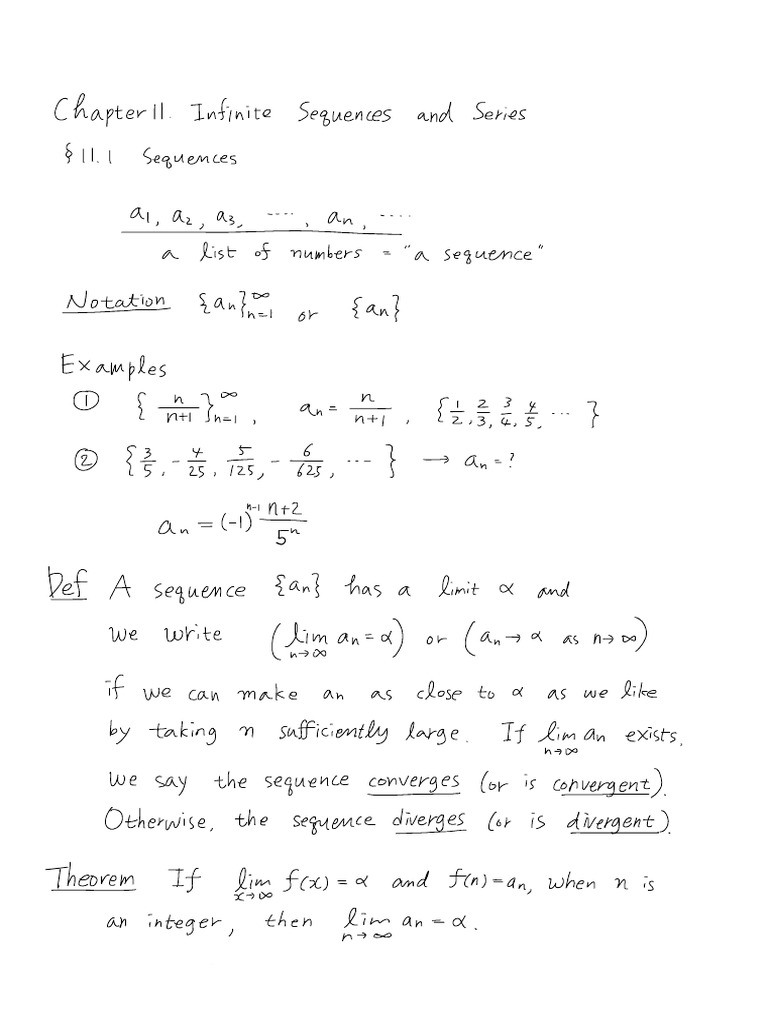 Chapter 11. Infinite Sequences and Series
§ 11.1 Sequences
a₁, a₂, a₃, ····, aₙ, ····
a list of numbers = "a sequence"
Notation {aₙ}ₙ₌₁^∞ or {aₙ}
Examples
① {n/(n+1)}ₙ₌₁^∞, aₙ = n/(n+1), {1/2, 2/3, 3/4, 4/5, ··· }
② {3/5, -4/25, 5/125, -6/625, ··· } → aₙ = ?
aₙ = (-1)^(n-1) (n+2)/5ⁿ
Def A sequence {aₙ} has a limit α and
we write (lim_{n→∞} aₙ = α) or (aₙ → α as n→∞)
if we can make an as close to α as we like
by taking n sufficiently large. If lim_{n→∞} an exists,
we say the sequence converges (or is convergent).
Otherwise, the sequence diverges (or is divergent).
Theorem If lim_{x→∞} f(x) = α and f(n) = aₙ, when n is
an integer, then lim_{n→∞} aₙ = α.